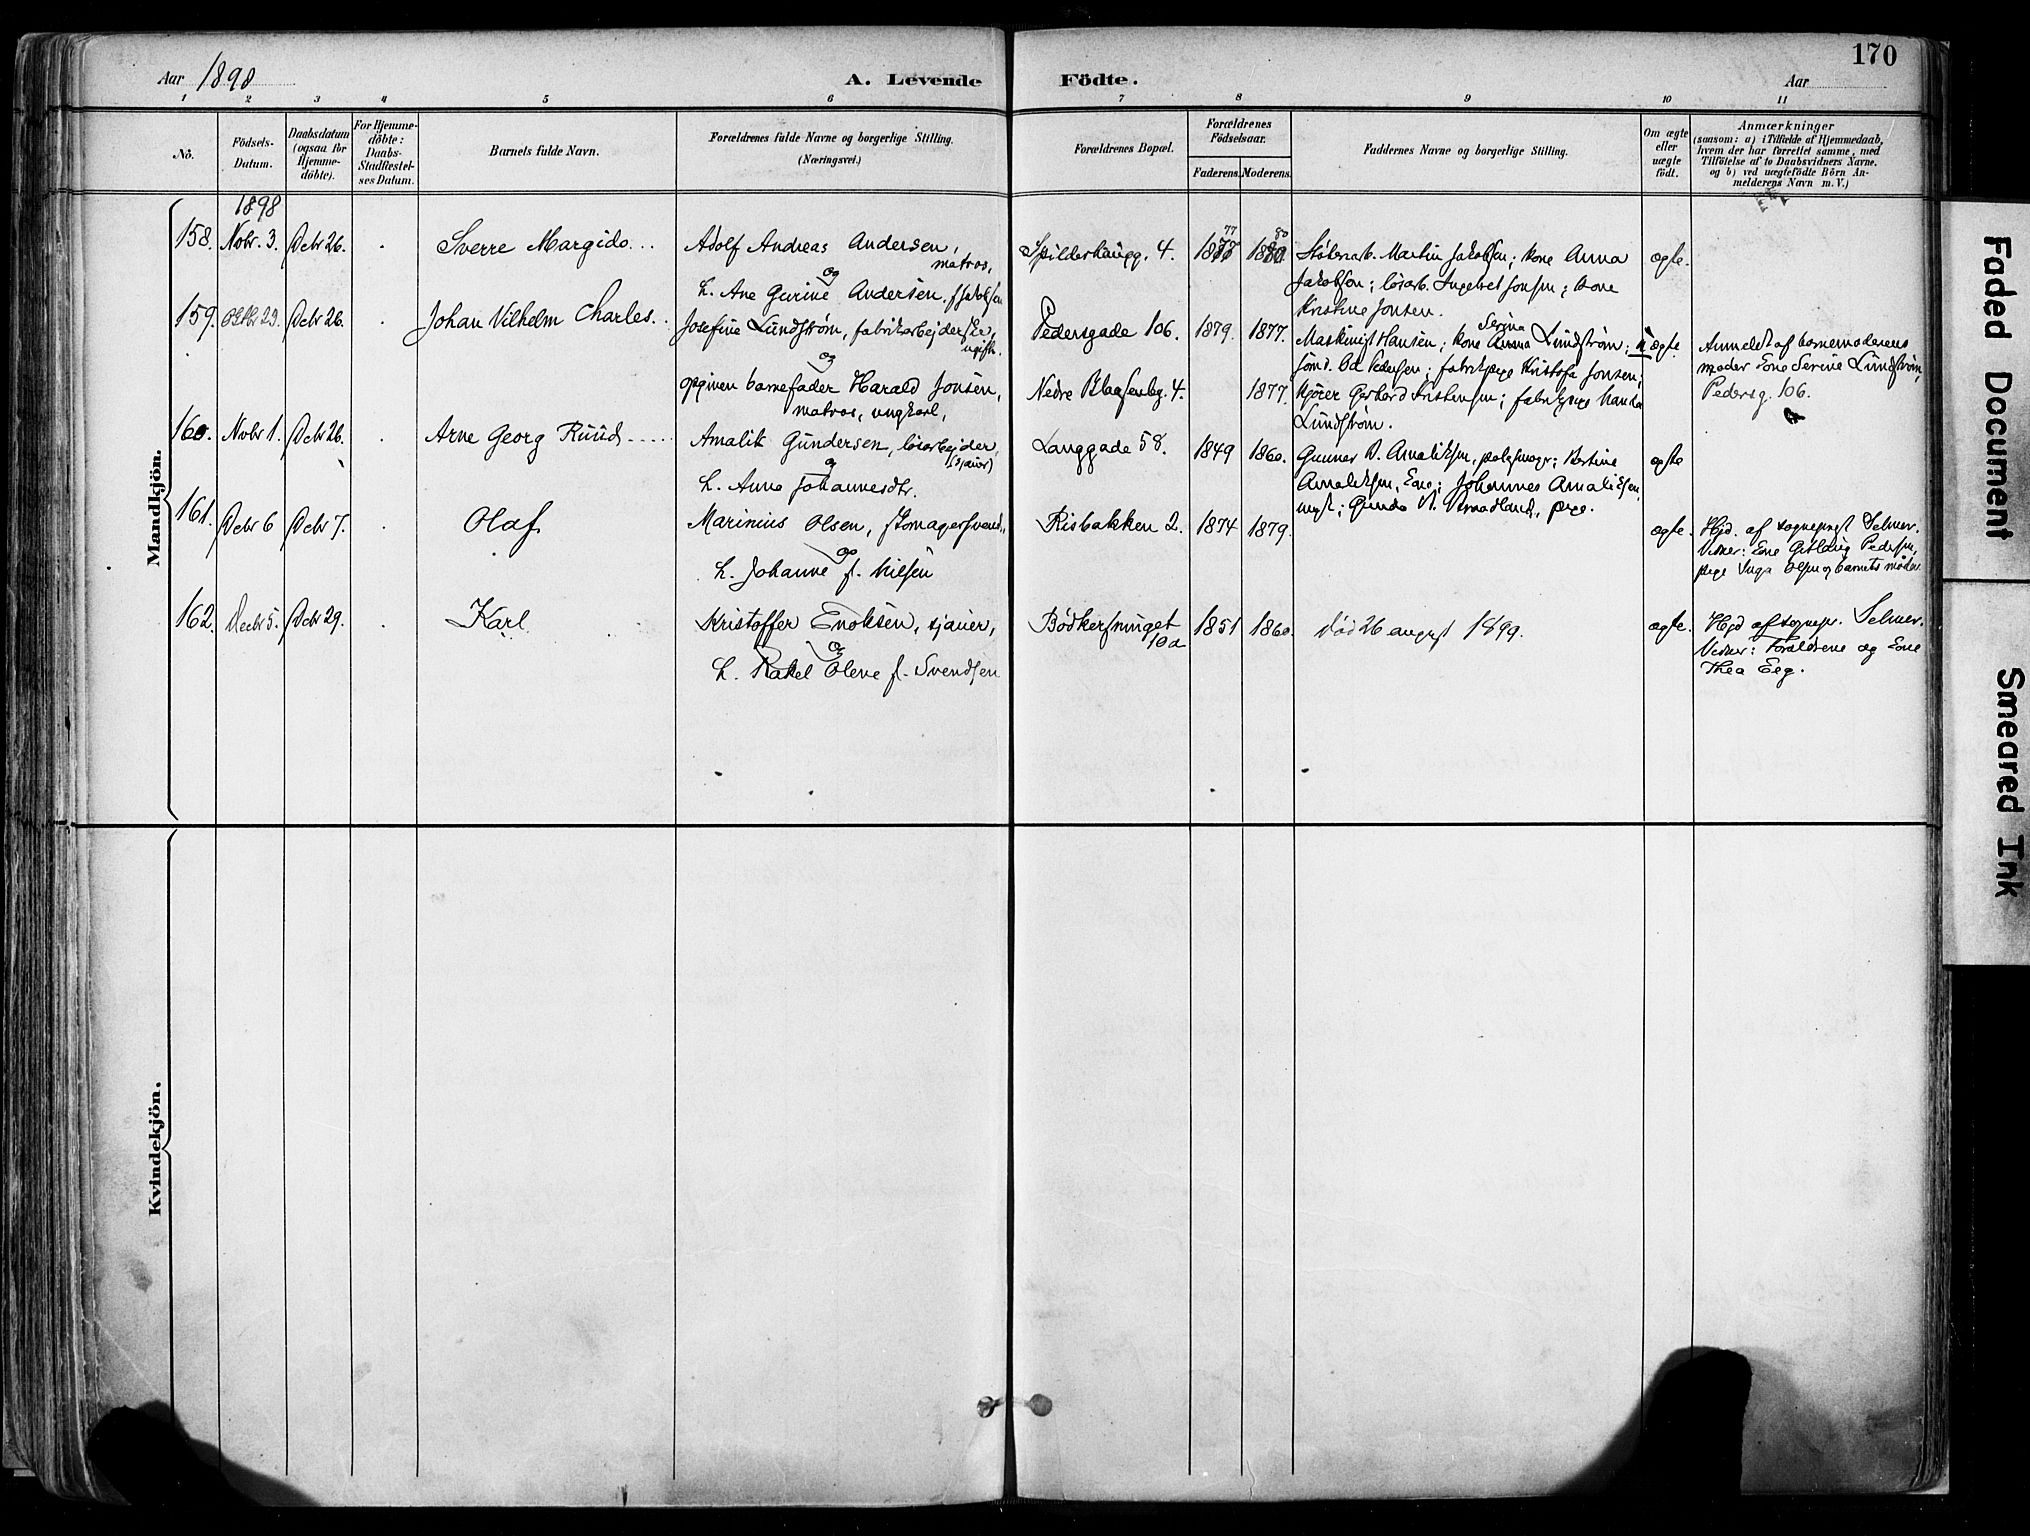 170
Aar 1898
A. Levende Födte.
Aar
1 2 3 4 5 6 7 8 9 10 11
No.
Födsels-
Datum.
Daabsdatum
(ogsaa for
Hjemme-
döbte).
For Hjemme-
döbte:
Daabs-
Stadfæstel-
ses Datum.
Barnets fulde Navn.
Forældrenes fulde Navne og borgerlige Stilling.
(Næringsvei.)
Forældrenes Bopæl.
Forældrenes
Födselsaar.
Faderens. Moderens.
Faddernes Navne og borgerlige Stilling.
Om ægte
eller
uægte
födt.
Anmærkninger
(saasom: a) i Tilfælde af Hjemmedaab,
hvem der har forrettet samme, med
Tilföielse af to Daabsvidners Navne.
og b) ved uægtefödte Börn An-
melderens Navn m. V.)
Mandkjön.
1898
158. Novbr. 3. Decbr 26. Sverre Margido
Adolf Andreas Andersen,
matros,
og
h. Ane Gurine Andersen, f. Jakobsen
Spilderhaugg. 4.
77 80
1877 1880
Støberiarb. Martin Jakobsen; kone Anna
Jakobsen; løsarb. Ingebret Jonsen; kone
Kristine Jonsen.
ægte.
159. Oktbr 29. Decbr 26. Johan Vilhelm Charles
Josefine Lundstrøm, fabrikarbejderske,
ugift.
og
opgiven barnefader Harald Jonsen,
matros, ungkarl,
Pedersgade 106. 1879. 1877.
Nedre Blaasenbg. 4. 1877.
Maskinist Hansen; kone Serina Lundstrøm;
Lundstrøm.
uægte
Anmeldt af barnemoderens
moder Kone Serine Lundstrøm,
Pedersg. 106.
160. Novbr 1. Decbr 26. Arne Georg Ruud
Amalik Gundersen, løsarbejder,
(sjauer)
og
h. Anna Johannesdtr.
Langgade 58. 1849 1860.
Gunnar Amaliksen, Bertine
Amaliksen, Johannes Amaliksen,
ægte
161. Decbr 6 Decbr 7. Olaf
Marinius Olsen, skomagersvend,
og
h. Johanne f. Nilsen
Risbakken 2. 1874 1879.
ægte.
Hjd. af sognepræst Selmer.
Vidner: Kone Pedersen,
pige Inga Olsen og barnets moder
162. Decbr 5. Decbr 29. Karl
Kristoffer Enoksen, sjauer,
og
h. Rakel Olene f. Svendsen
Bødkersmuget
10a
1851 1860. død 26 august 1899.
ægte.
Hjd af sognepr. Selmer.
Vidner: Forældrene og Kone
Thea Eeg.
Kvindekjön.
Faded Document
Smeared Ink